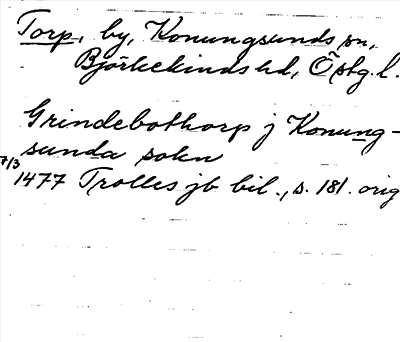 Torp, by, Konungsunds sn,
Björkekinds hd, Östg. l.
Grindebothorp j Konung-
sunda sokn
7/3
1477 Trolles jb bil., s. 181. orig